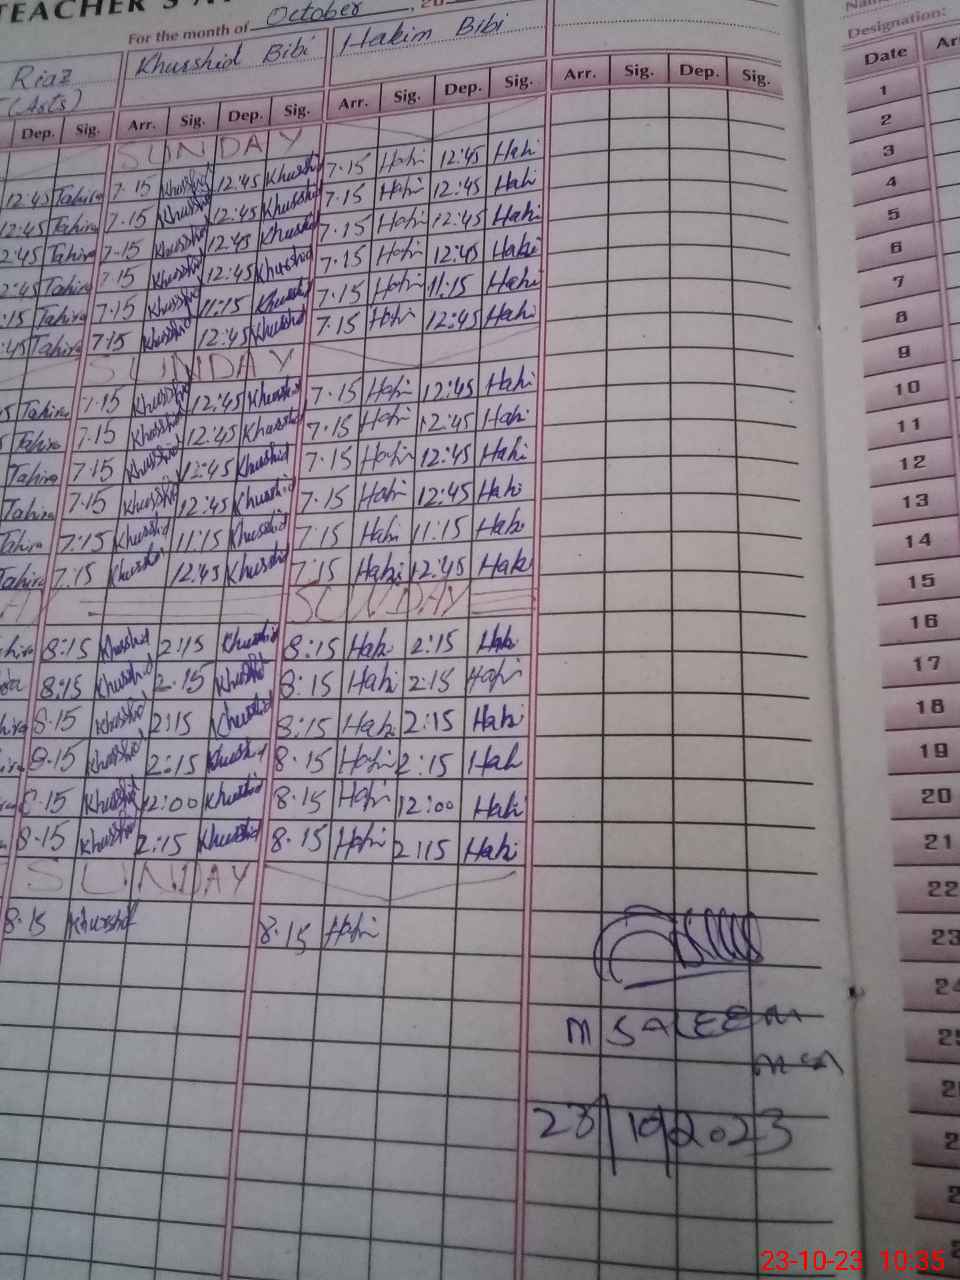 TEACHER'S
For the month of October, 20
Riaz Khurshid Bibi Hakim Bibi Designation:
(Arts)
Dep. Sig. Arr. Sig. Dep. Sig. Arr. Sig. Dep. Sig. Arr. Sig. Dep. Sig. Date Ar
1
SUNDAY 2
12:45 Tahira 7.15 Khurshid 12:45 Khurshid 7.15 Haki 12:45 Haki 3
12:45 Tahira 7.15 Khurshid 12:45 Khurshid 7.15 Haki 12:45 Haki 4
2:45 Tahira 7.15 Khurshid 12:45 Khurshid 7.15 Haki 12:45 Haki 5
2:45 Tahira 7.15 Khurshid 12:45 Khurshid 7.15 Haki 12:45 Haki 6
:15 Tahira 7.15 Khurshid 11:15 Khurshid 7.15 Haki 11:15 Haki 7
:45 Tahira 7.15 Khurshid 12:45 Khurshid 7.15 Haki 12:45 Haki 8
SUNDAY 9
5 Tahira 7.15 Khurshid 12:45 Khurshid 7.15 Haki 12:45 Haki 10
5 Tahira 7.15 Khurshid 12:45 Khurshid 7.15 Haki 12:45 Haki 11
Tahira 7.15 Khurshid 12:45 Khurshid 7.15 Haki 12:45 Haki 12
Tahira 7.15 Khurshid 12:45 Khurshid 7.15 Haki 12:45 Haki 13
Tahira 7:15 Khurshid 11:15 Khurshid 7:15 Haki 11:15 Haki 14
Tahira 7:15 Khurshid 12:45 Khurshid 7:15 Haki 12:45 Haki 15
SUNDAY 16
hira 8:15 Khurshid 2:15 Khurshid 8:15 Haki 2:15 Haki 17
8:15 Khurshid 2.15 Khurshid 8:15 Haki 2:15 Haki 18
hira 8.15 Khurshid 2:15 Khurshid 8:15 Haki 2:15 Haki 19
ira 8.15 Khurshid 2:15 Khurshid 8.15 Haki 2:15 Haki 20
8.15 Khurshid 12:00 Khurshid 8.15 Haki 12:00 Haki 21
8.15 Khurshid 2:15 Khurshid 8.15 Haki 2:15 Haki
SUNDAY 22
8.15 Khurshid 8.15 Haki 23
24
M SALEEM 25
MEA
23/10/2023
23-10-23 10:35